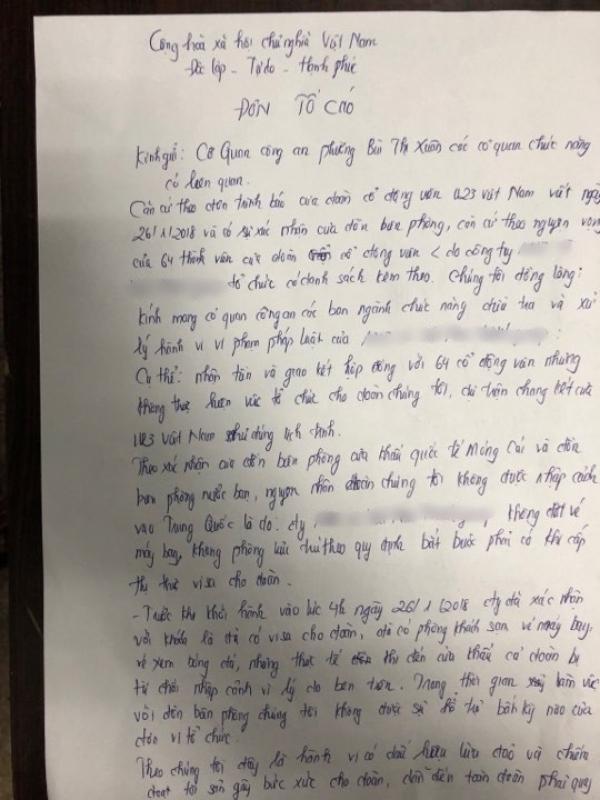 Cộng hoà xã hội chủ nghĩa Việt Nam
Độc lập - Tự do - Hạnh phúc
ĐƠN TỐ CÁO
Kính gửi: Cơ Quan công an phường Bùi Thị Xuân các cơ quan chức năng
có liên quan.
Căn cứ theo đơn trình báo của đoàn cổ động viên U23 Việt Nam viết ngày
26/1/2018 và có sự xác nhận của đồn biên phòng, căn cứ theo nguyện vọng
của 64 thành viên của đoàn cổ động viên < do công ty
tổ chức có danh sách kèm theo. Chúng tôi đồng lòng:
kính mong cơ quan công an các ban ngành chức năng điều tra và xử
lý hành vi vi phạm pháp luật của
Cụ thể: nhận tiền và giao kết hợp đồng với 64 cổ động viên nhưng
không thực hiện việc tổ chức cho đoàn chúng tôi, dự trận chung kết của
U23 Việt Nam như đúng lịch trình.
Theo xác nhận của đồn biên phòng cửa khẩu quốc tế Móng Cái và đồn
biên phòng nước bạn, nguyên nhân đoàn chúng tôi không được nhập cảnh
vào Trung Quốc là do: cty không đặt vé
máy bay, không phòng lưu trú theo quy định bắt buộc phải có khi cấp
thị thực visa cho đoàn.
- Trước khi khởi hành vào lúc 4h ngày 26/1/2018 cty đã xác nhận
với khách là đã có visa cho đoàn, đã có phòng khách sạn vé máy bay,
vé xem bóng đá, nhưng thực tế khi đến cửa khẩu cả đoàn bị
từ chối nhập cảnh vì lý do bên trên. Trong thời gian làm việc
với đồn biên phòng chúng tôi không được sự hỗ trợ bất kỳ nào của
đơn vị tổ chức.
Theo chúng tôi đây là hành vi có dấu hiệu lừa đảo và chiếm
đoạt tài sản gây bức xúc cho đoàn, dẫn đến toàn đoàn phải quay